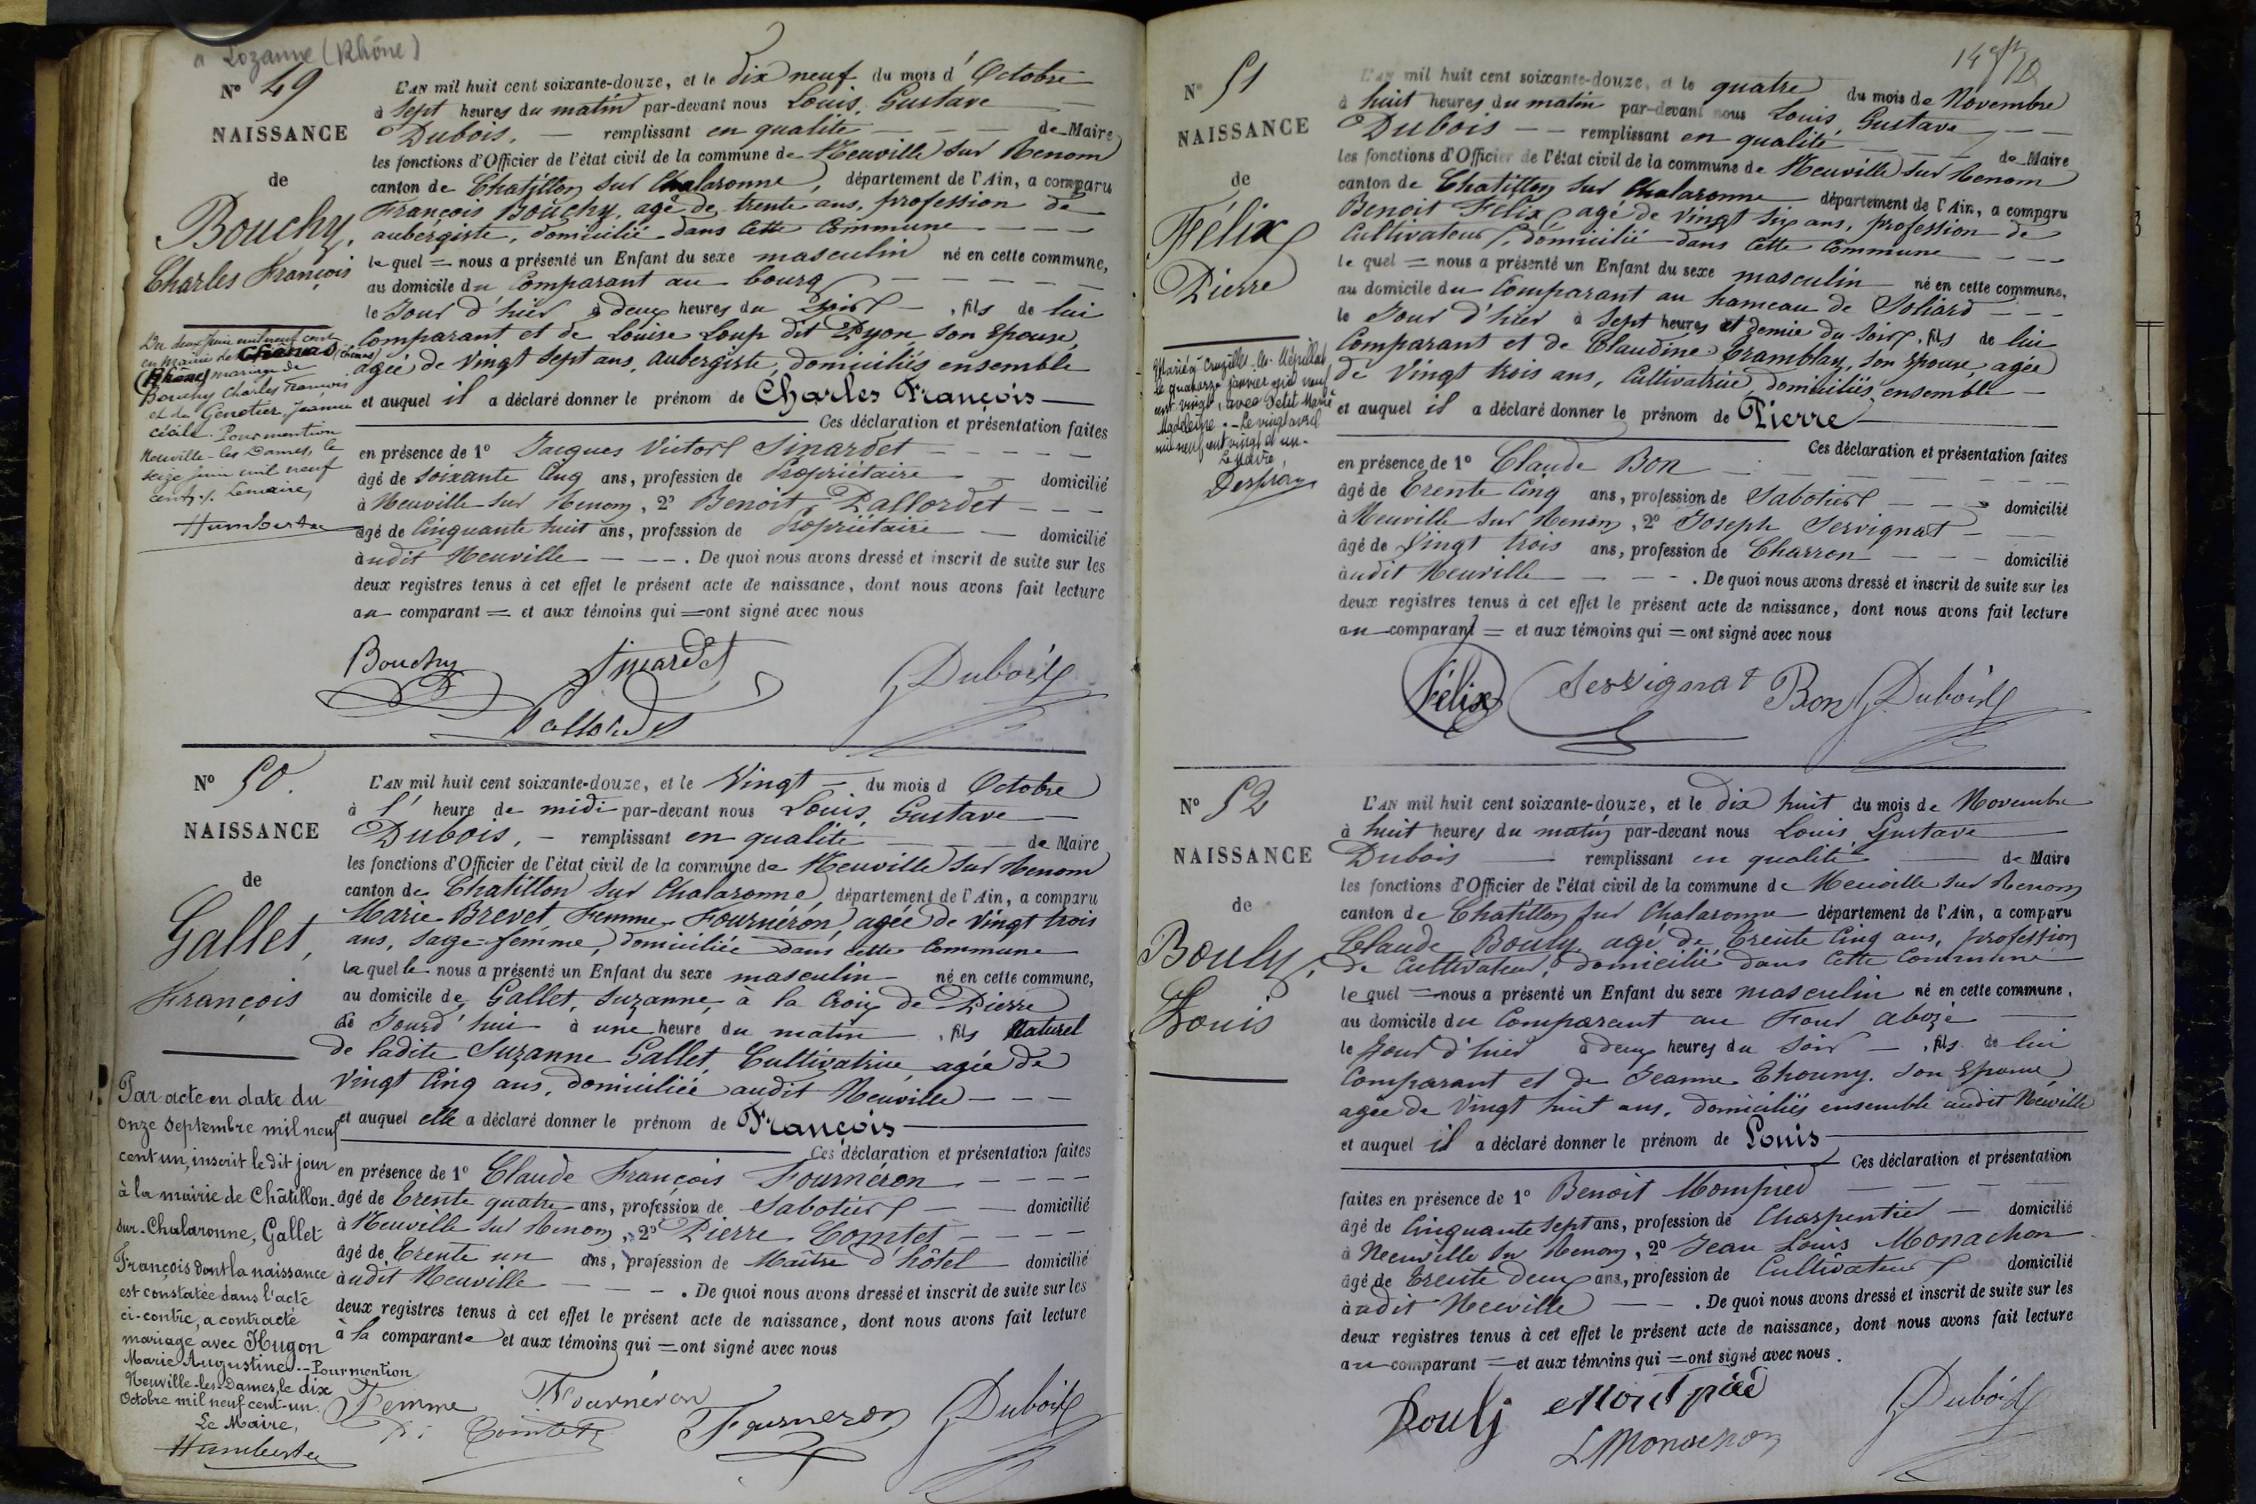 a Lozanne (Rhône)
N° 49
NAISSANCE
de
Bouchy,
Charles François
Du deux juin mil neuf cent
en mairie de Chénas (Chénas)
(Rhône) mariage de
Bouchy Charles François
et de Genetier Jeanne
Cécile. Pour mention
Neuville-les-Dames, le
seize juin mil neuf
cent. Le maire,
Humbert
L'AN mil huit cent soixante-douze, et le dix neuf du mois d'Octobre
à sept heures du matin par-devant nous Louis Gustave
Dubois, remplissant en qualité de Maire
les fonctions d'Officier de l'état civil de la commune de Neuville sur Renom
canton de Chatillon sur Chalaronne, département de l'Ain, a comparu
François Bouchy, agé de trente ans, profession de
aubergiste, domicilié dans cette Commune
le quel = nous a présenté un Enfant du sexe masculin né en cette commune,
au domicile du Comparant au bourg
le Jour d'hier à deux heures du soir, fils de lui
Comparant et de Louise Loup dit Dyon, son Epouse,
agée de Vingt sept ans, Aubergiste, domiciliés ensemble
et auquel il a déclaré donner le prénom de Charles François
Ces déclaration et présentation faites
en présence de 1° Jacques Victor Sinardet
âgé de soixante Cinq ans, profession de Propriétaire domicilié
à Neuville sur Renom, 2° Benoit Pallordet
âgé de Cinquante huit ans, profession de Propriétaire domicilié
audit Neuville. De quoi nous avons dressé et inscrit de suite sur les
deux registres tenus à cet effet le présent acte de naissance, dont nous avons fait lecture
au comparant = et aux témoins qui = ont signé avec nous
Bouchy Sinardet Dubois
Pallordet
N° 50.
NAISSANCE
de
Gallet,
François
Par acte en date du
onze Septembre mil neuf
cent un, inscrit le dit jour
à la mairie de Châtillon-
sur-Chalaronne, Gallet
François dont la naissance
est constatée dans l'acte
ci-contre, a contracté
mariage avec Hugon
Marie Augustine.- Pour mention
Neuville-les-Dames, le dix
Octobre mil neuf cent-un.
Le Maire,
Humbert
L'AN mil huit cent soixante-douze, et le Vingt du mois d Octobre
à l' heure de midi par-devant nous Louis Gustave
Dubois, remplissant en qualité de Maire
les fonctions d'Officier de l'état civil de la commune de Neuville sur Renom
canton de Chatillon sur Chalaronne, département de l'Ain, a comparu
Marie Brevet, Femme Fournéron, agée de Vingt trois
ans, sage-femme, domiciliée dans cette Commune
la quelle nous a présenté un Enfant du sexe masculin né en cette commune,
au domicile de Gallet, Suzanne, à la Croix de Pierre
le Jourd'hui à une heure du matin, fils Naturel
de ladite Suzanne Gallet, Cultivatrice, agée de
Vingt Cinq ans, domiciliée audit Neuville
et auquel elle a déclaré donner le prénom de François
Ces déclaration et présentation faites
en présence de 1° Claude François Fournéron
âgé de Trente quatre ans, profession de Sabotier domicilié
à Neuville sur Renom, 2° Pierre Comtet
âgé de Trente un ans, profession de Maître d'hôtel domicilié
audit Neuville. De quoi nous avons dressé et inscrit de suite sur les
deux registres tenus à cet effet le présent acte de naissance, dont nous avons fait lecture
à la comparante et aux témoins qui = ont signé avec nous
Femme Fournéron
Comtet Fourneron Dubois
N° 51
NAISSANCE
de
Félix
Pierre
Marié à Cruzilles-les-Mépillat
le quatorze janvier mil neuf
cent vingt, avec Petit Marie
Madeleine.- Le vingt avril
mil neuf cent vingt et un.-
Le Maire
L'AN mil huit cent soixante-douze, et le quatre du mois de Novembre
à huit heures du matin par-devant nous Louis Gustave
Dubois remplissant en qualité de Maire
les fonctions d'Officier de l'état civil de la commune de Neuville sur Renom
canton de Chatillon sur Chalaronne département de l'Ain, a comparu
Benoit Félix, agé de Vingt six ans, profession de
Cultivateur, domicilié dans cette Commune
le quel = nous a présenté un Enfant du sexe masculin né en cette commune,
au domicile du Comparant au hameau de Soliard
le Jour d'hier à sept heures et demie du soir, fils de lui
Comparant et de Claudine Tramblay, son Epouse, agée
de Vingt trois ans, Cultivatrice, domiciliés ensemble
et auquel il a déclaré donner le prénom de Pierre
Ces déclaration et présentation faites
en présence de 1° Claude Bon
âgé de Trente Cinq ans, profession de Sabotier domicilié
à Neuville sur Renom, 2° Joseph Servignat
âgé de Vingt trois ans, profession de Charron domicilié
audit Neuville. De quoi nous avons dressé et inscrit de suite sur les
deux registres tenus à cet effet le présent acte de naissance, dont nous avons fait lecture
au comparant = et aux témoins qui = ont signé avec nous
Félix Servignat Bon Dubois
N° 52
NAISSANCE
de
Bouly,
Louis
L'AN mil huit cent soixante-douze, et le dix huit du mois de Novembre
à huit heures du matin par-devant nous Louis Gustave
Dubois remplissant en qualité de Maire
les fonctions d'Officier de l'état civil de la commune de Neuville sur Renom
canton de Chatillon sur Chalaronne département de l'Ain, a comparu
Claude Bouly, agé de Trente Cinq ans, profession
de Cultivateur, domicilié dans cette Commune
le quel = nous a présenté un Enfant du sexe masculin né en cette commune,
au domicile du Comparant au Four abozé
le Jour d'hier à deux heures du soir, fils de lui
Comparant et de Jeanne Thouny, son Epouse,
agée de Vingt huit ans, domiciliés ensemble audit Neuville
et auquel il a déclaré donner le prénom de Louis
Ces déclaration et présentation
faites en présence de 1° Benoit Mompied
âgé de Cinquante sept ans, profession de Charpentier domicilié
à Neuville sur Renom, 2° Jean Louis Monachon
âgé de Trente deux ans, profession de Cultivateur domicilié
audit Neuville. De quoi nous avons dressé et inscrit de suite sur les
deux registres tenus à cet effet le présent acte de naissance, dont nous avons fait lecture
au comparant = et aux témoins qui = ont signé avec nous.
Bouly Montpied Dubois
L Monachon